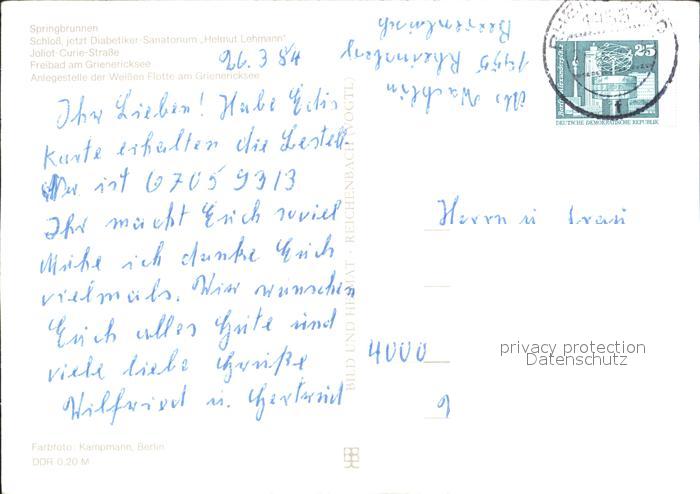 Springbrunnen
Schloß, jetzt Diabetiker-Sanatorium „Helmut Lehmann"
Joliot-Curie-Straße
Freibad am Grienericksee
Anlegestelle der Weißen Flotte am Grienericksee
26. 3 84
Ihr Lieben! Habe Eure
Karte erhalten die Bestell-
Nr ist 6705 9313
Ihr macht Euch soviel
Mühe ich danke Euch
vielmals. Wir wünschen
Euch alles Gute und
viele liebe Grüße
Wilfried u. Gertrud
Farbfoto: Kampmann, Berlin
DDR 0,20 M
BILD UND HEIMAT · REICHENBACH (VOGTL
1955 Rheinsberg
25
DEUTSCHE DEMOKRATISCHE REPUBLIK
Herrn u Frau
4000
privacy protection
Datenschutz